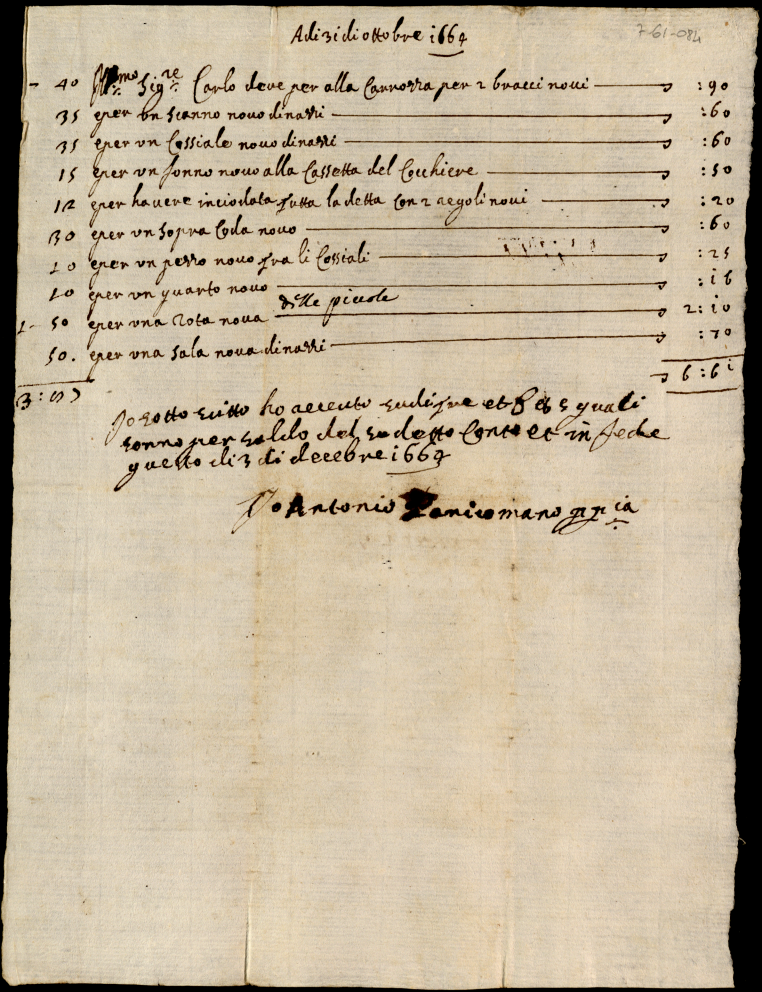 Adi 31 di ottobre 1664
7-61-084
- 40 Ill.mo Sig.re Carlo deve per alla Carrozza per 2 bracci novi :90
35 e per un scanno novo dinazzi :60
35 e per vn Cossiale novo dinazzi :60
15 e per vn fonno novo alla Cassetta del Cochiere :50
12 e per havere inciodata tutta la detta con 2 regoli novi :20
30 e per vn sopra Coda novo :60
10 e per vn pezzo novo fra li Cossiali :25
10 e per vn quarto novo :16
delle piccole
1- 50 e per vna rota nova 2:10
50. e per vna sala nova dinazzi :70
6:61
3:
Io sotto scritto ho receuto scudi tre et quali
sonno per saldo del sudetto Conto et in fede
questo di 3 di decebre 1664
Io Antonio mano pp.ia